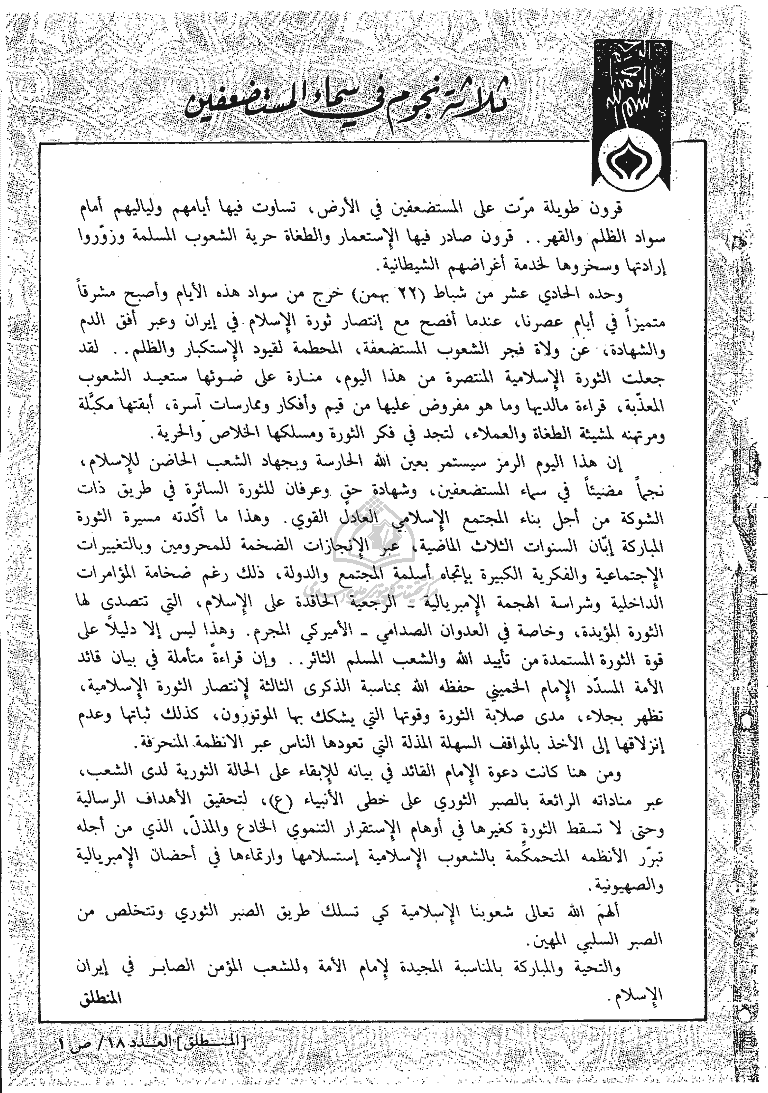 ثلاثة نجوم في سماء المستضعفين
قرون طويلة مرّت على المستضعفين في الأرض، تساوت فيها أيامهم ولياليهم أمام
سواد الظلم والقهر.. قرون صادر فيها الإستعمار والطغاة حرية الشعوب المسلمة وزوّروا
إرادتها وسخروها لخدمة أغراضهم الشيطانية.
وحده الحادي عشر من شباط (٢٢ بهمن) خرج من سواد هذه الأيام وأصبح مشرقاً
متميزاً في أيام عصرنا، عندما أفصح مع إنتصار ثورة الإسلام في إيران وعبر أفق الدم
والشهادة، عن ولاة فجر الشعوب المستضعفة، المحطمة لقيود الإستكبار والظلم.. لقد
جعلت الثورة الإسلامية المنتصرة من هذا اليوم، منارة على ضوئها ستعيد الشعوب
المعذّبة، قراءة مالديها وما هو مفروض عليها من قيم وأفكار وممارسات آسرة، أبقتها مكبَّلة
ومرتهنه لمشيئة الطغاة والعملاء، لتجد في فكر الثورة ومسلكها الخلاص والحرية.
إن هذا اليوم الرمز سيستمر بعين الله الحارسة وبجهاد الشعب الحاضن للإسلام،
نجماً مضيئاً في سماء المستضعفين، وشهادة حق وعرفان للثورة السائرة في طريق ذات
الشوكة من أجل بناء المجتمع الإسلامي العادل القوي. وهذا ما أكّدته مسيرة الثورة
المباركة إبّان السنوات الثلاث الماضية، عبر الإنجازات الضخمة للمحرومين وبالتغييرات
الإجتماعية والفكرية الكبيرة بإتجاه أسلمة المجتمع والدولة، ذلك رغم ضخامة المؤامرات
الداخلية وشراسة الهجمة الإمبريالية ـ الرجعية الحاقدة على الإسلام، التي تتصدى لها
الثورة المؤيدة، وخاصة في العدوان الصدامي ـ الأميركي المجرم. وهذا ليس إلا دليلاً على
قوة الثورة المستمدة من تأييد الله والشعب المسلم الثائر.. وإن قراءةً متأملة في بيان قائد
الأمة المسدّد الإمام الخميني حفظه الله بمناسبة الذكرى الثالثة لإنتصار الثورة الإسلامية،
تظهر بجلاء، مدى صلابة الثورة وقوتها التي يشكك بها الموتورون، كذلك ثباتها وعدم
إنزلاقها إلى الأخذ بالمواقف السهلة المذلة التي تعودها الناس عبر الانظمة المنحرفة.
ومن هنا كانت دعوة الإمام القائد في بيانه للإبقاء على الحالة الثورية لدى الشعب،
عبر مناداته الرائعة بالصبر الثوري على خطى الأنبياء (ع)، لتحقيق الأهداف الرسالية
وحتى لا تسقط الثورة كغيرها في أوهام الإستقرار التنموي الخادع والمذلّ، الذي من أجله
تبرّر الأنظمه المتحكمة بالشعوب الإسلامية إستسلامها وارتماءها في أحضان الإمبريالية
والصهيونية.
ألهمَ الله تعالى شعوبنا الإسلامية كي تسلك طريق الصبر الثوري وتتخلص من
الصبر السلبي المهين.
والتحية والمباركة بالمناسبة المجيدة لإمام الأمة وللشعب المؤمن الصابر في إيران
الإسلام.
المنطلق
[المنطلق] العدد ١٨/ ص ١